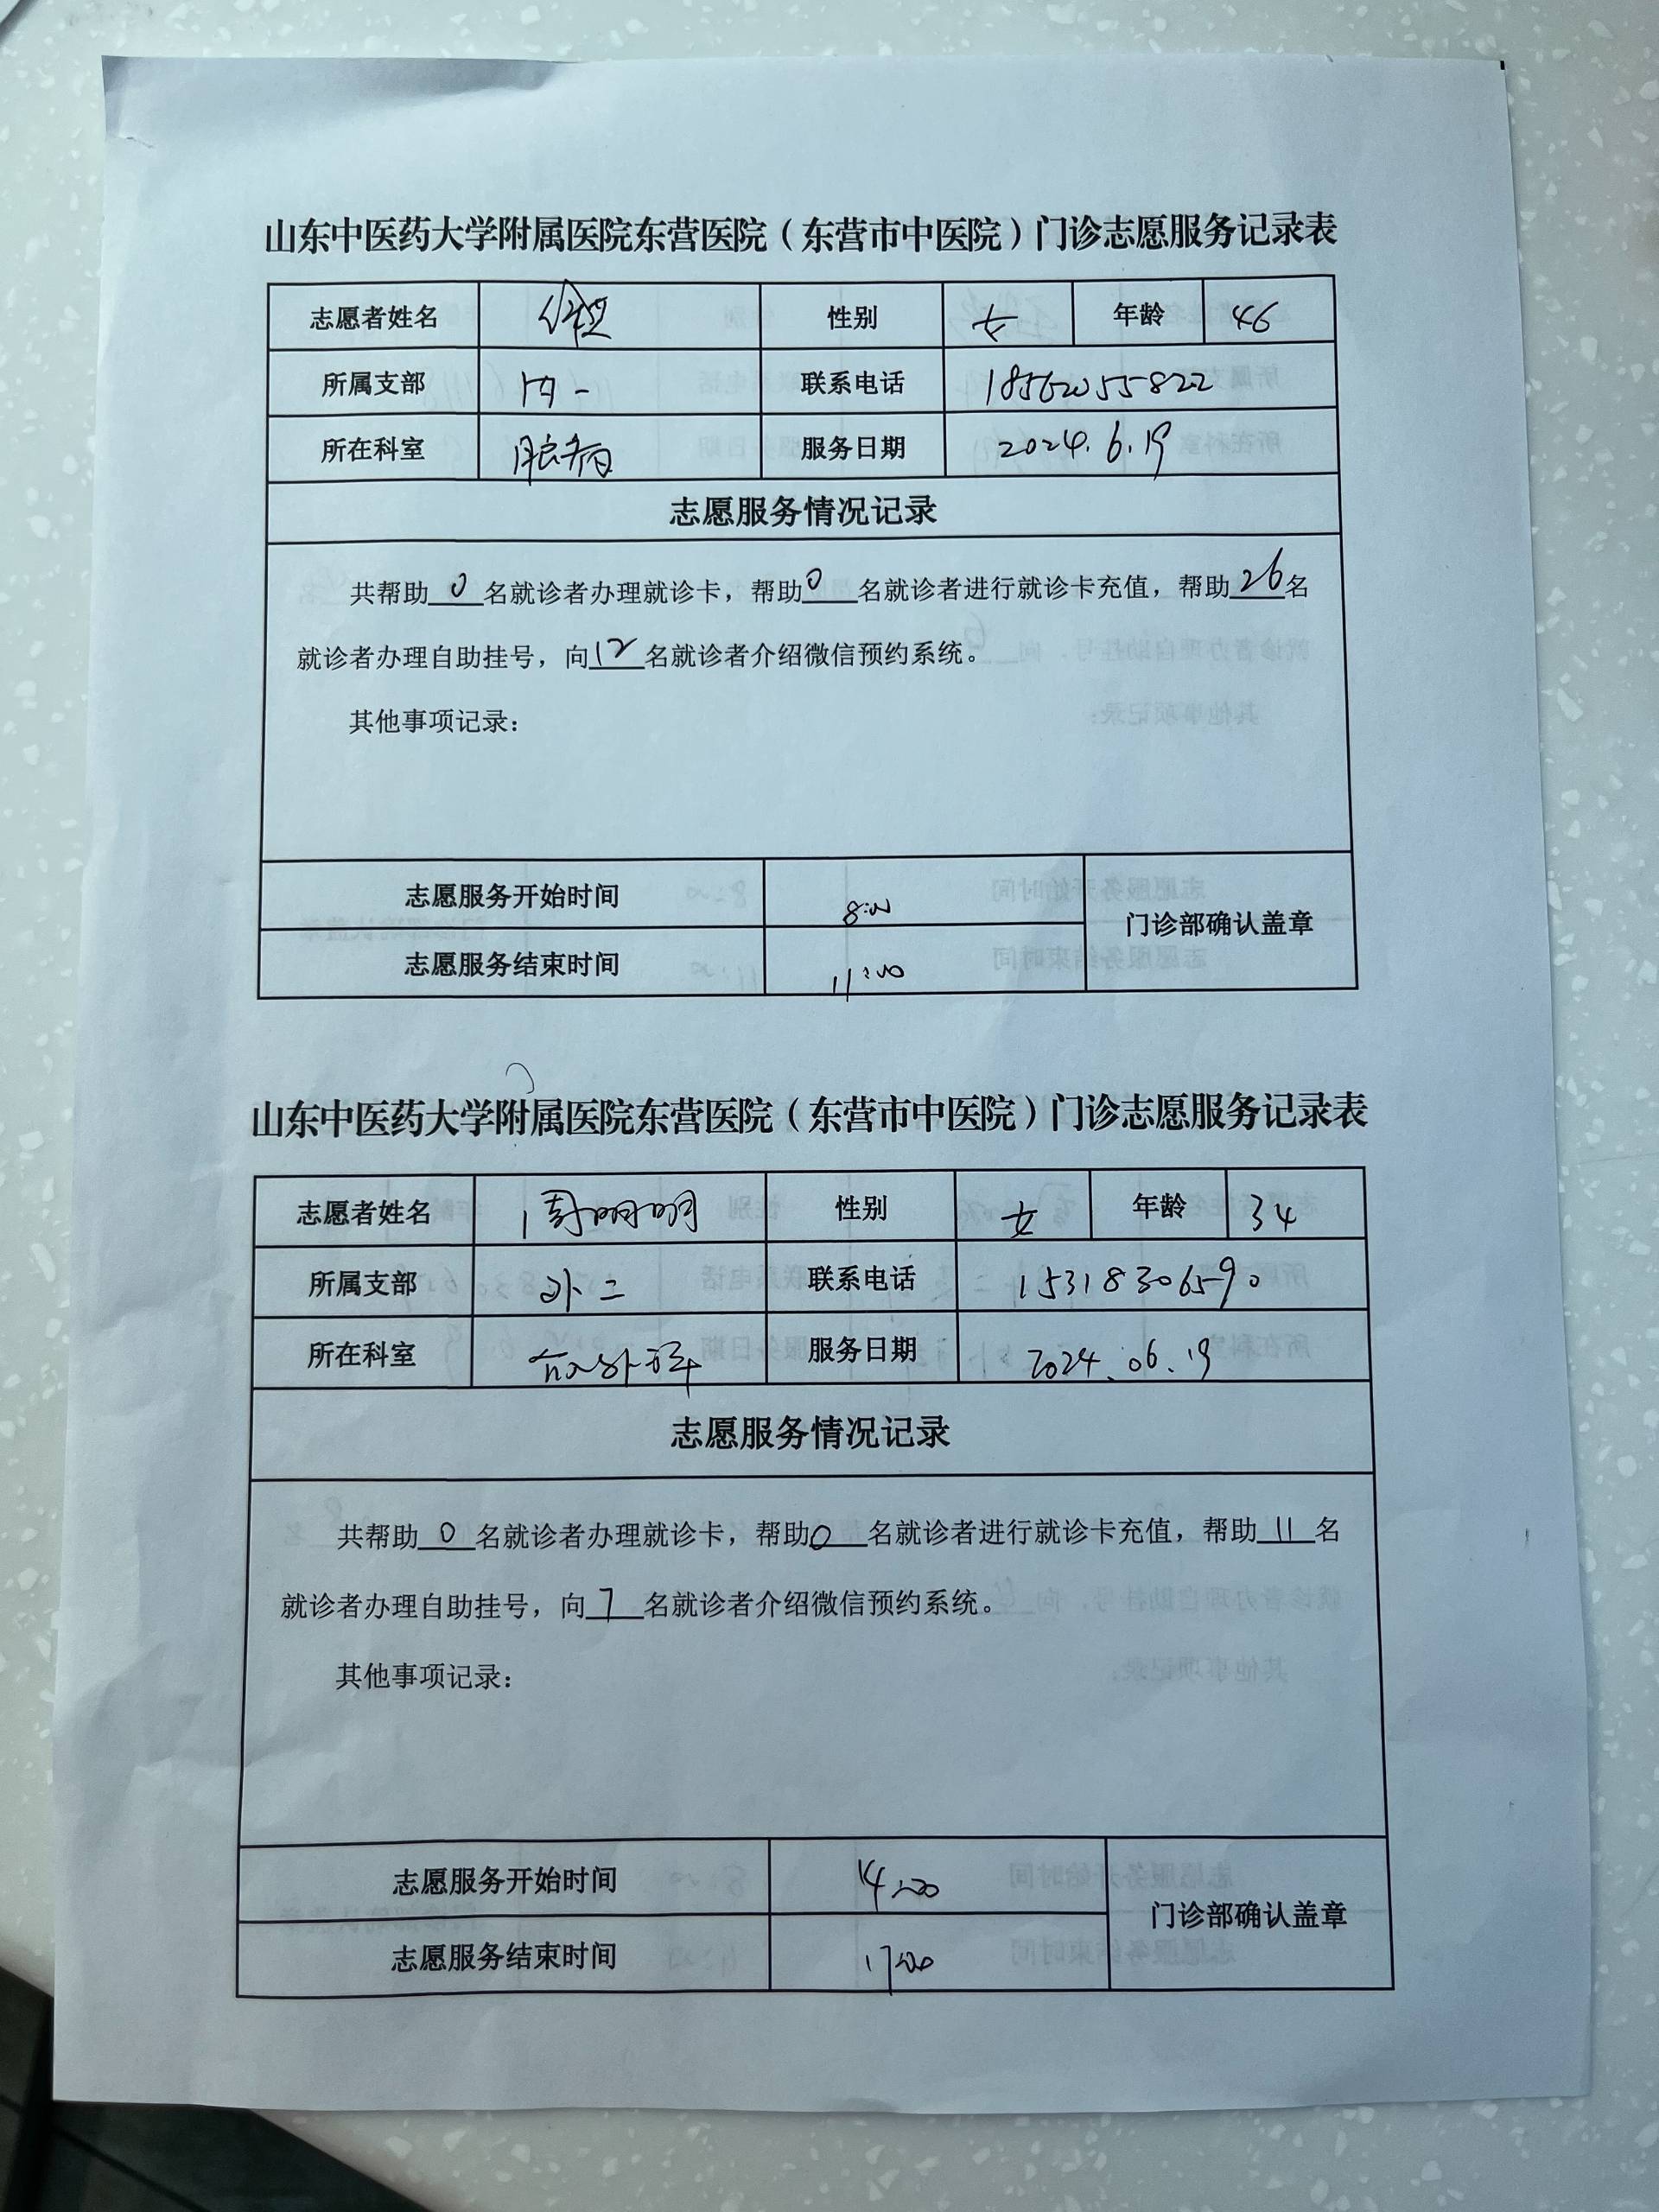 山东中医药大学附属医院东营医院（东营市中医院）门诊志愿服务记录表
志愿者姓名 性别 女 年龄 46
所属支部 内一 联系电话 18562055822
所在科室 服务日期 2024.6.19
志愿服务情况记录
共帮助0名就诊者办理就诊卡，帮助0名就诊者进行就诊卡充值，帮助26名
就诊者办理自助挂号，向12名就诊者介绍微信预约系统。
其他事项记录：
志愿服务开始时间 8:00
门诊部确认盖章
志愿服务结束时间 11:00
山东中医药大学附属医院东营医院（东营市中医院）门诊志愿服务记录表
志愿者姓名 周明明 性别 女 年龄 34
所属支部 外二 联系电话 15318306590
所在科室 服务日期 2024.06.19
志愿服务情况记录
共帮助0名就诊者办理就诊卡，帮助0名就诊者进行就诊卡充值，帮助11名
就诊者办理自助挂号，向7名就诊者介绍微信预约系统。
其他事项记录：
志愿服务开始时间 14:00
门诊部确认盖章
志愿服务结束时间 17:00